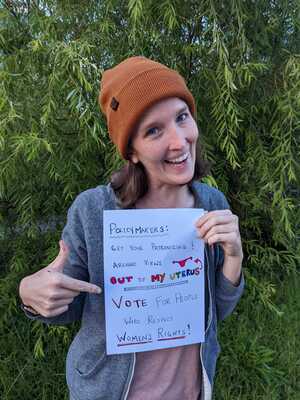 POLICYMAKERS:
GET YOUR PATRONIZING &
ARCHAIC VIEWS
OUT OF MY UTERUS
VOTE FOR PEOPLE
WHO RESPECT
WOMENS RIGHTS!